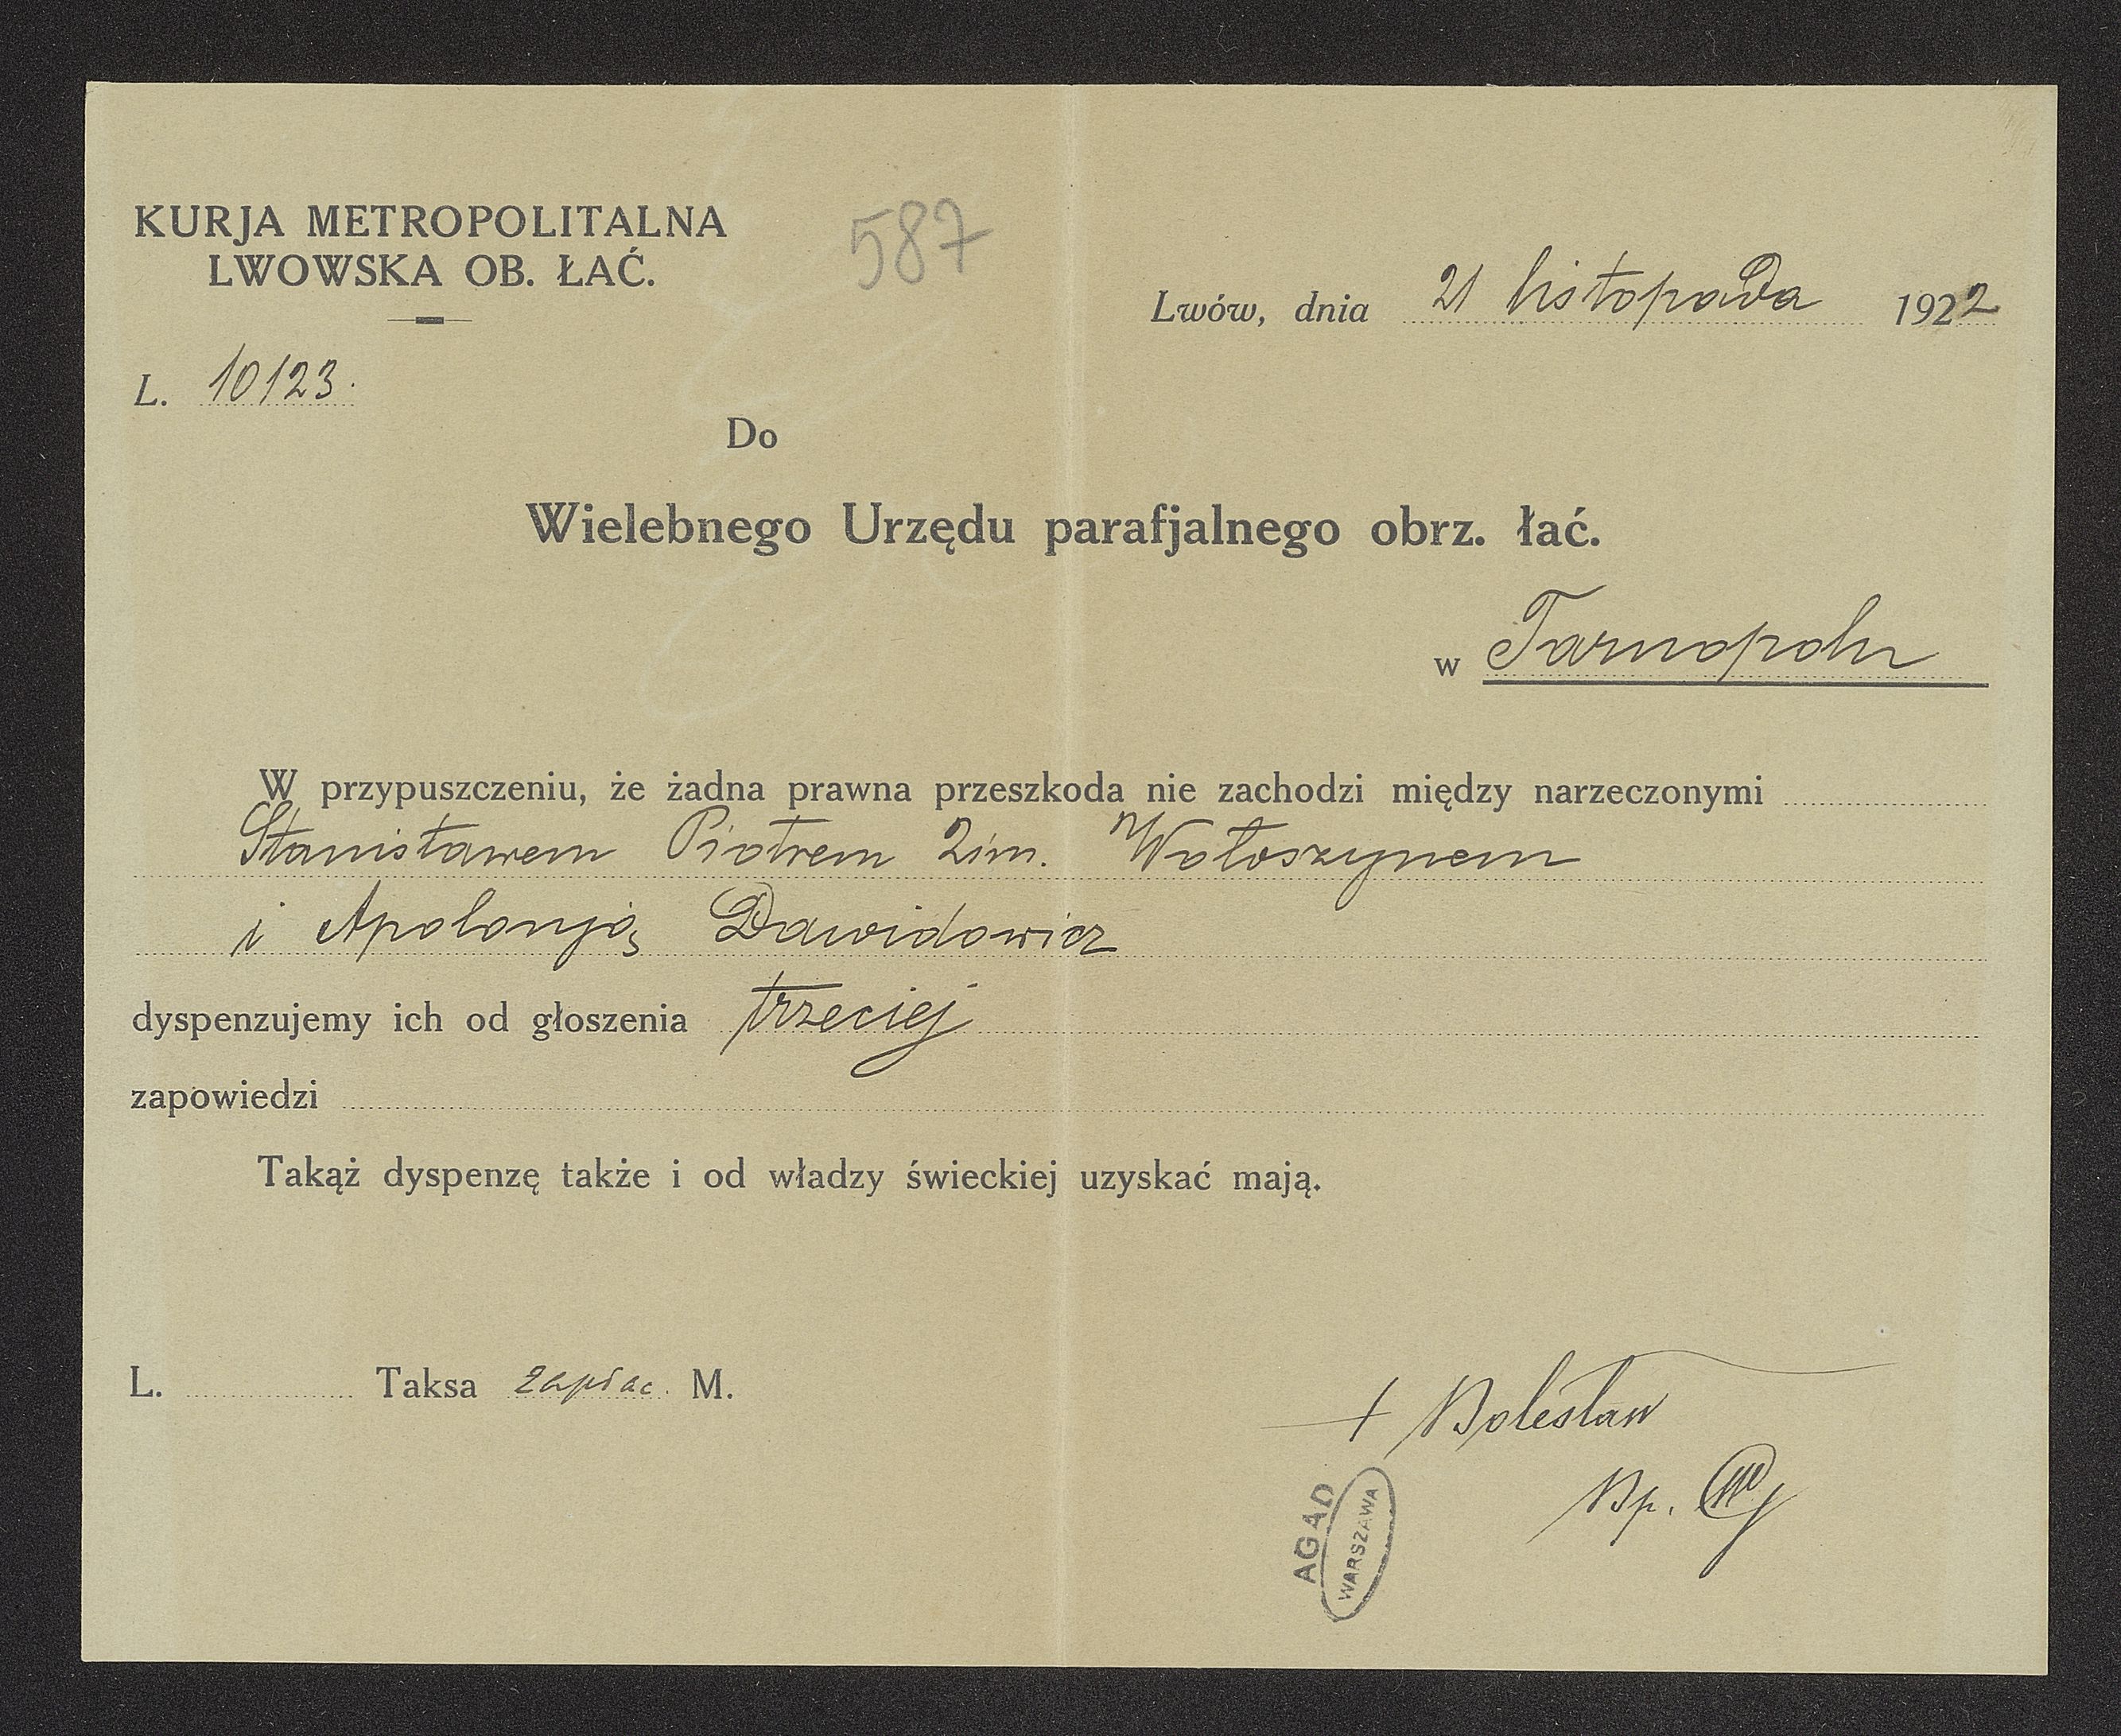 KURJA METROPOLITALNA
LWOWSKA OB. ŁAĆ.
587
Lwów, dnia 21 listopada 1922
L. 10123.
Do
Wielebnego Urzędu parafjalnego obrz. łać.
w Tarnopolu
W przypuszczeniu, że żadna prawna przeszkoda nie zachodzi między narzeczonymi
Stanisławem Piotrem 2im. Wołoszynem
i Apolonją Dawidowicz
dyspenzujemy ich od głoszenia trzeciej
zapowiedzi
Takąż dyspenzę także i od władzy świeckiej uzyskać mają.
L. Taksa zapłac. M.
+ Bolesław
Bp.
AGAD
WARSZAWA